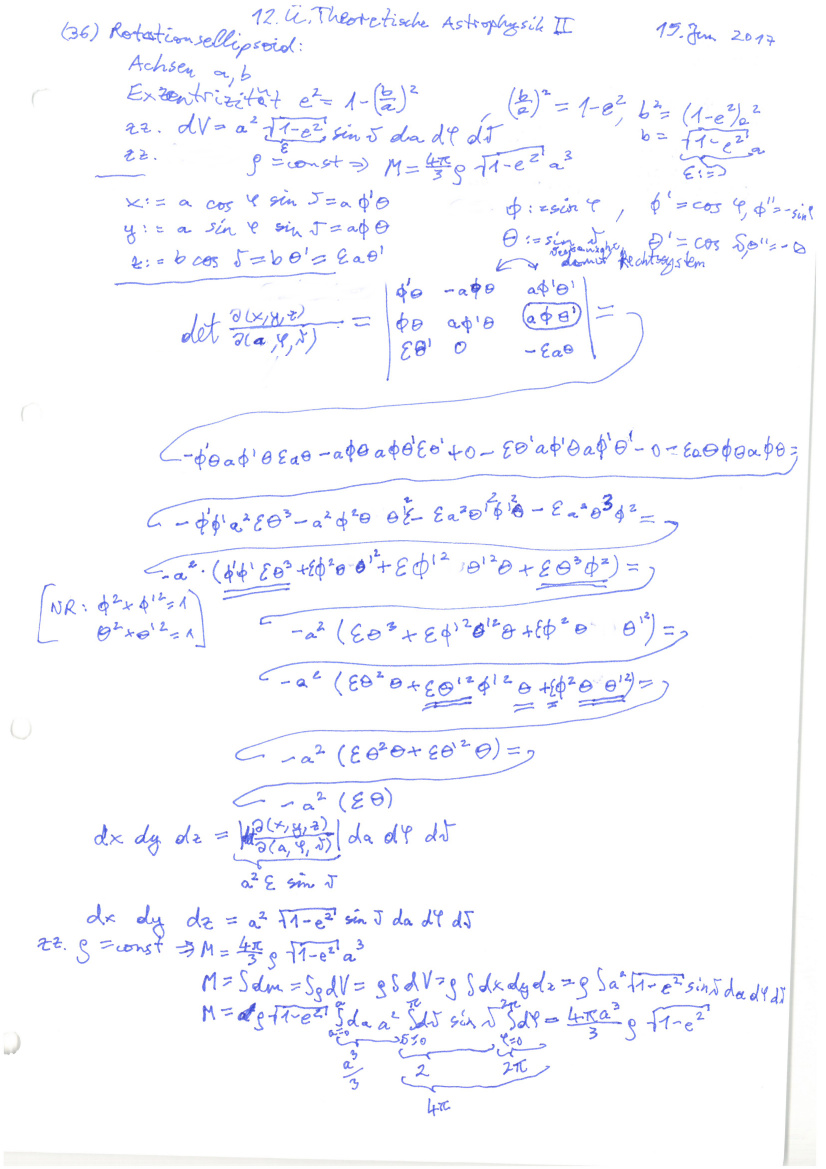 12. Ü. Theoretische Astrophysik II 15. Jun 2017
(36) Rotationsellipsoid:
Achsen a, b
Exzentrizität e² = 1-(b/a)², (b/a)² = 1-e², b² = (1-e²)a²
zz. dV = a² √(1-e²) sin ϑ da dφ dϑ b = √(1-e²) a
ε ε:=
zz. ρ = const ⇒ M = 4π/3 ρ √(1-e²) a³
x := a cos φ sin ϑ = a ϕ'Θ ϕ := sin φ, ϕ' = cos φ, ϕ'' = -sin φ
y := a sin φ sin ϑ = aϕΘ Θ := sin ϑ, Θ' = cos ϑ, Θ'' = -Θ
z := b cos ϑ = bΘ' = εaΘ' damit Rechtssystem
det ∂(x,y,z)/∂(a,φ,ϑ) = | ϕ'Θ -aϕΘ aϕ'Θ' | =
| ϕΘ aϕ'Θ aϕΘ' |
| εΘ' 0 -εaΘ |
-ϕ'Θaϕ'ΘεaΘ - aϕΘaϕΘ'εΘ' + 0 - εΘ'aϕ'Θaϕ'Θ' - 0 - εaΘϕΘaϕΘ =
-ϕ'ϕ'a²εΘ³ - a²ϕ²Θ Θ'²ε - εa²Θ'²ϕ'²Θ - εa²Θ³ϕ² =
-a² · (ϕ'ϕ'εΘ³ + εϕ²ΘΘ'² + εϕ'²Θ'²Θ + εΘ³ϕ²) =
[NR: ϕ²+ϕ'²=1
Θ²+Θ'²=1]
-a² (εΘ³ + εϕ'²Θ'²Θ + εϕ²Θ Θ'²) =
-a² (εΘ²Θ + εΘ'²ϕ'²Θ + εϕ²Θ Θ'²) =
-a² (εΘ²Θ + εΘ'²Θ) =
-a² (εΘ)
dx dy dz = |∂(x,y,z)/∂(a,φ,ϑ)| da dφ dϑ
a² ε sin ϑ
dx dy dz = a² √(1-e²) sin ϑ da dφ dϑ
zz. ρ = const ⇒ M = 4π/3 ρ √(1-e²) a³
M = ∫dm = ∫ρdV = ρ∫dV = ρ∫dxdydz = ρ∫a²√(1-e²) sin ϑ da dφ dϑ
M = ρ√(1-e²) ∫_{a=0}^{a} da a² ∫_{ϑ=0}^{π} dϑ sin ϑ ∫_{φ=0}^{2π} dφ = 4πa³/3 ρ √(1-e²)
a³/3 2 2π
4π